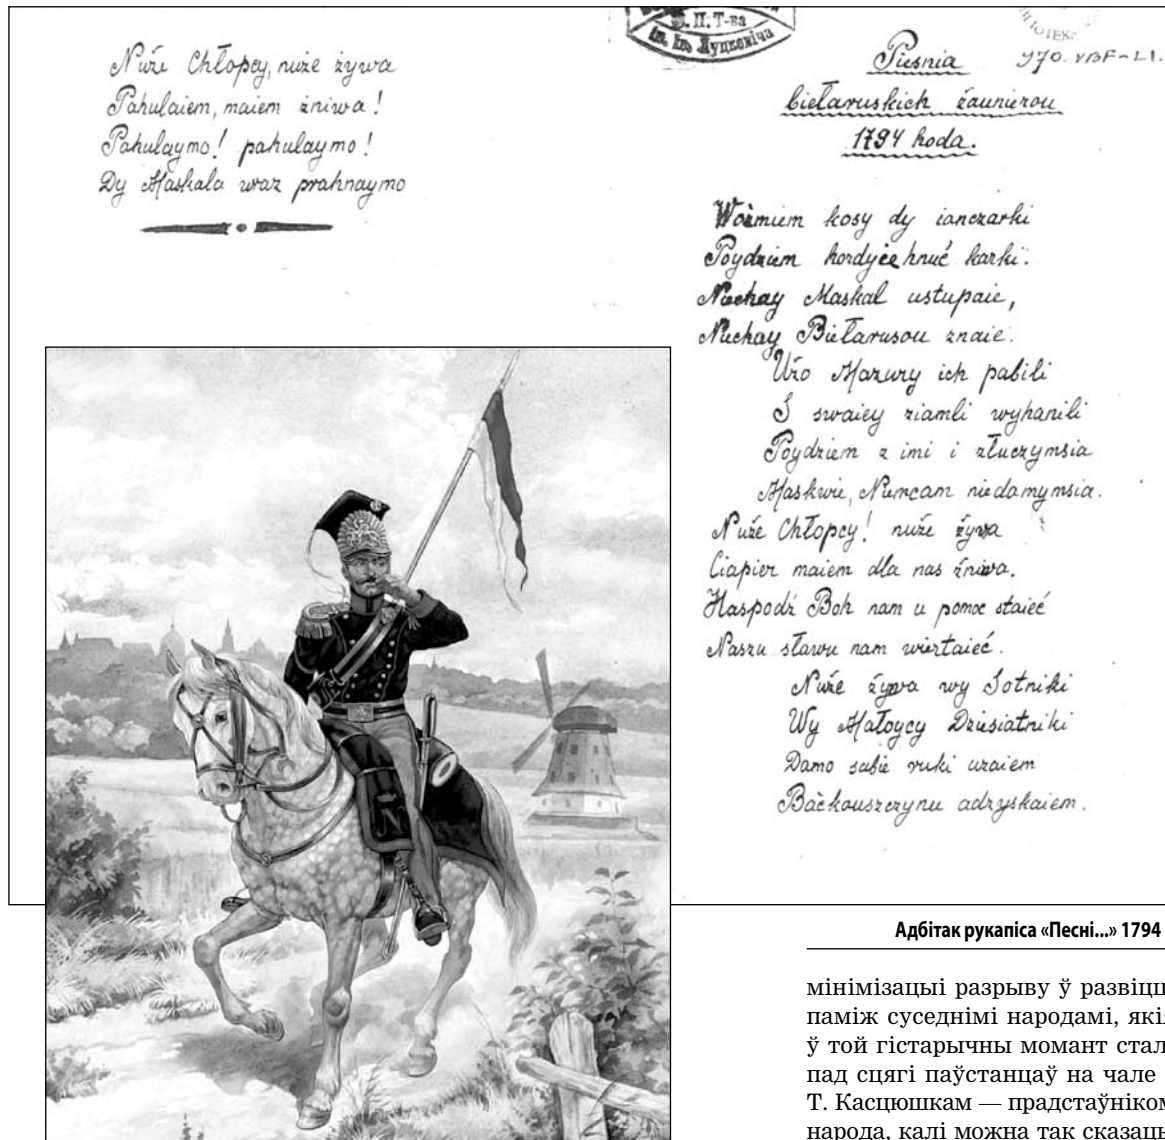 Nuże Chłopcy, nuże żywa
Pahulaiem, maiem żniwa!
Pahulaymo! pahulaymo!
Dy Maskala wraz prahnaymo
В. П. Т-ва
ім. Ів. Луцкевіча
Piesnia
biełaruskich żaunierou
1794 hoda.
Woźmiem kosy dy ianczarki
Poydziem hordyie hnuć karki.
Niechay Maskal ustupaie,
Niechay Biełarusou znaie.
Użo Mazury ich pabili
I swaiey ziamli wyhanili
Poydziem z imi i złuczymsia
Maskwie, Niemcam niedamymsia.
Nuże Chłopcy! nuże żywa
Ciapier maiem dla nas żniwa.
Haspodź Boh nam u pomoc staieć
Naszu sławu nam wiertaieć.
Nuże żywa wy Sotniki
Wy Małoycy Dziesiatniki
Damo sabie ruki uzaiem
Baćkouszczynu adzyskaiem.
Адбітак рукапіса «Песні...» 1794
мінімізацыі разрыву ў развіцц
паміж суседнімі народамі, якія
ў той гістарычны момант стал
пад сцягі паўстанцаў на чале
Т. Касцюшкам — прадстаўніком
народа, калі можна так сказаць